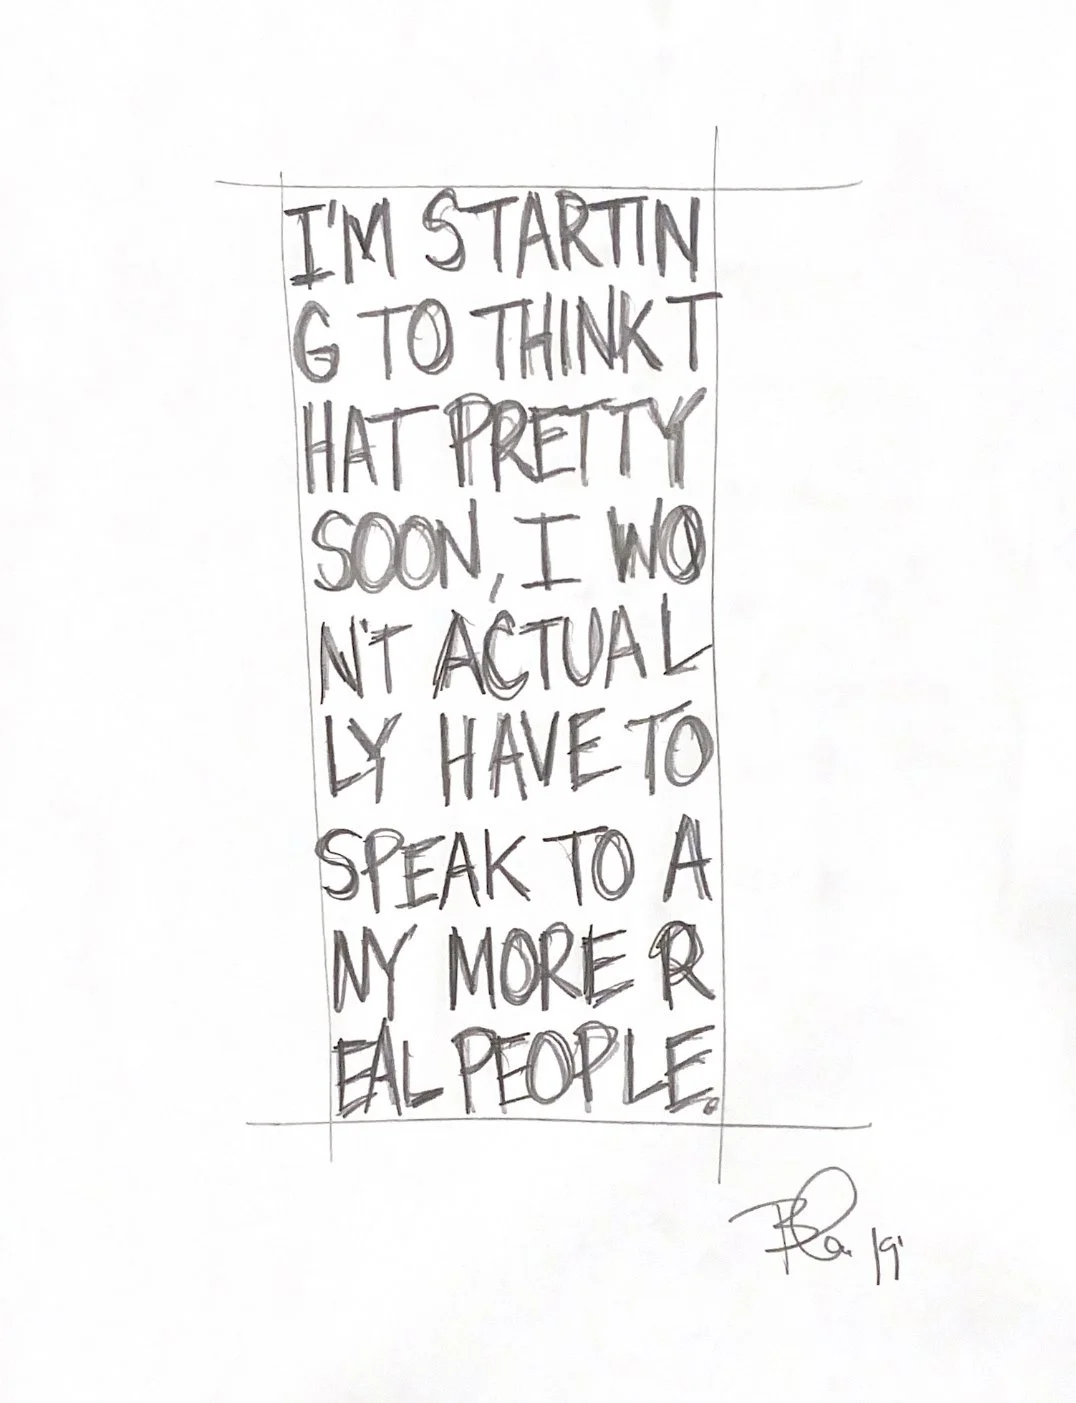 I'M STARTIN
G TO THINK T
HAT PRETTY
SOON, I WO
N'T ACTUAL
LY HAVE TO
SPEAK TO A
NY MORE R
EAL PEOPLE.
19'